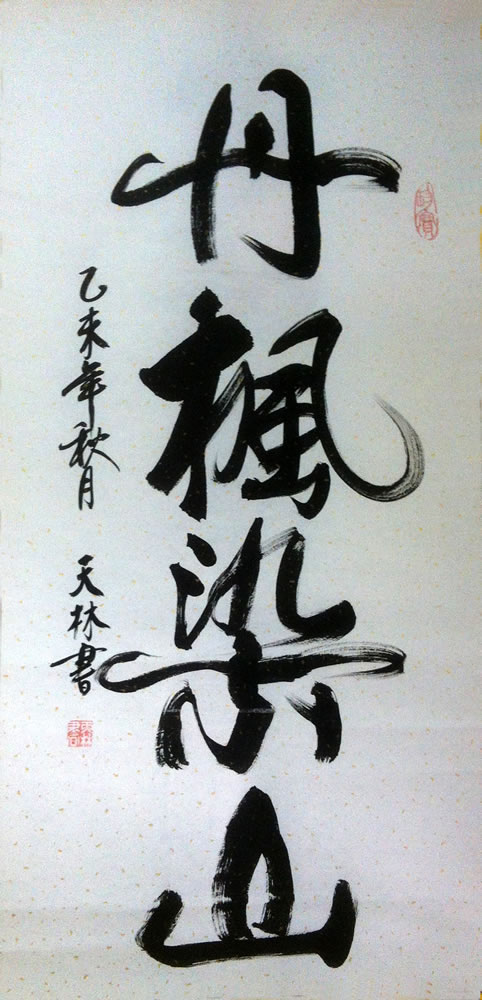 丹楓染山
乙未年秋月 天林書